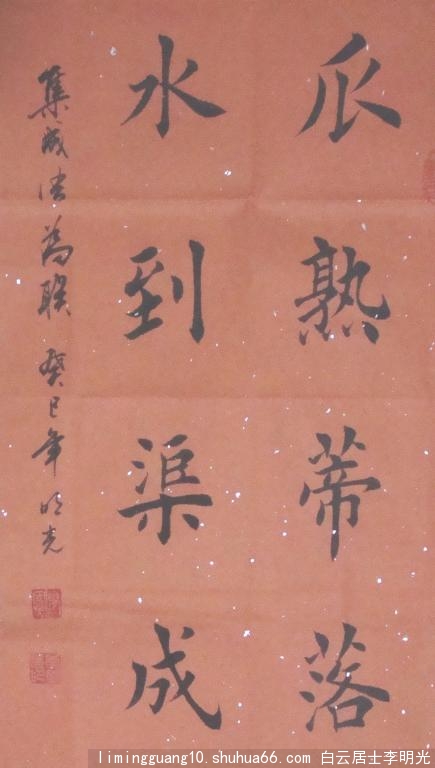 瓜熟蒂落
水到渠成
集成語為聯 癸巳年 明光
limingguang10.shuhua66.com 白云居士李明光